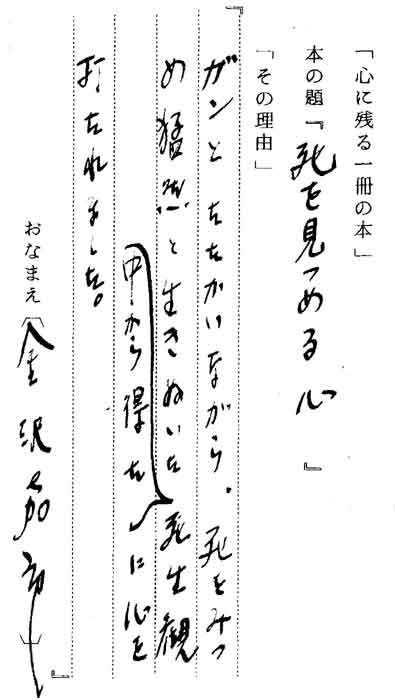 「心に残る一冊の本」
本の題『死を見つめる心』
「その理由」
『ガンとたたかいながら、死をみつ
め猛然と生きぬいた死生観
中から得たに心を
打たれました。
おなまえ（金沢嘉市）』